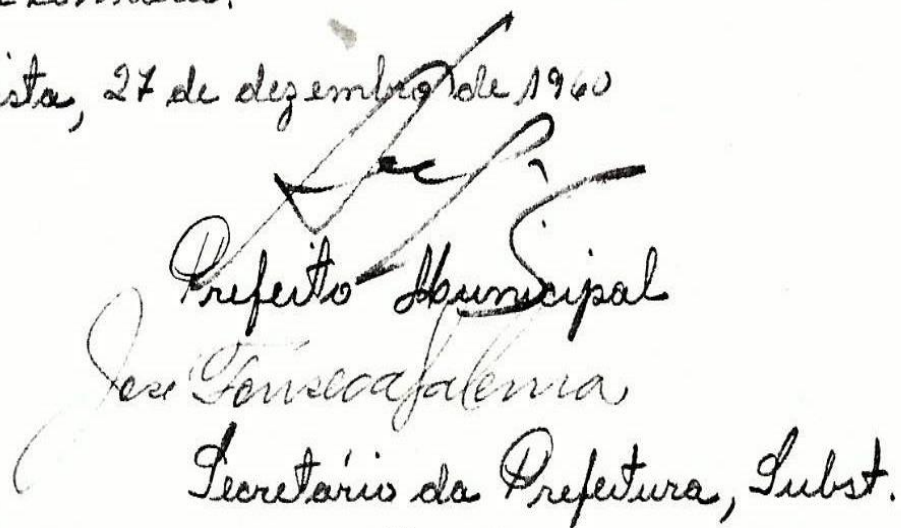 ista, 27 de dezembro de 1960
Prefeito Municipal
José Fonseca
Secretário da Prefeitura, Subst.